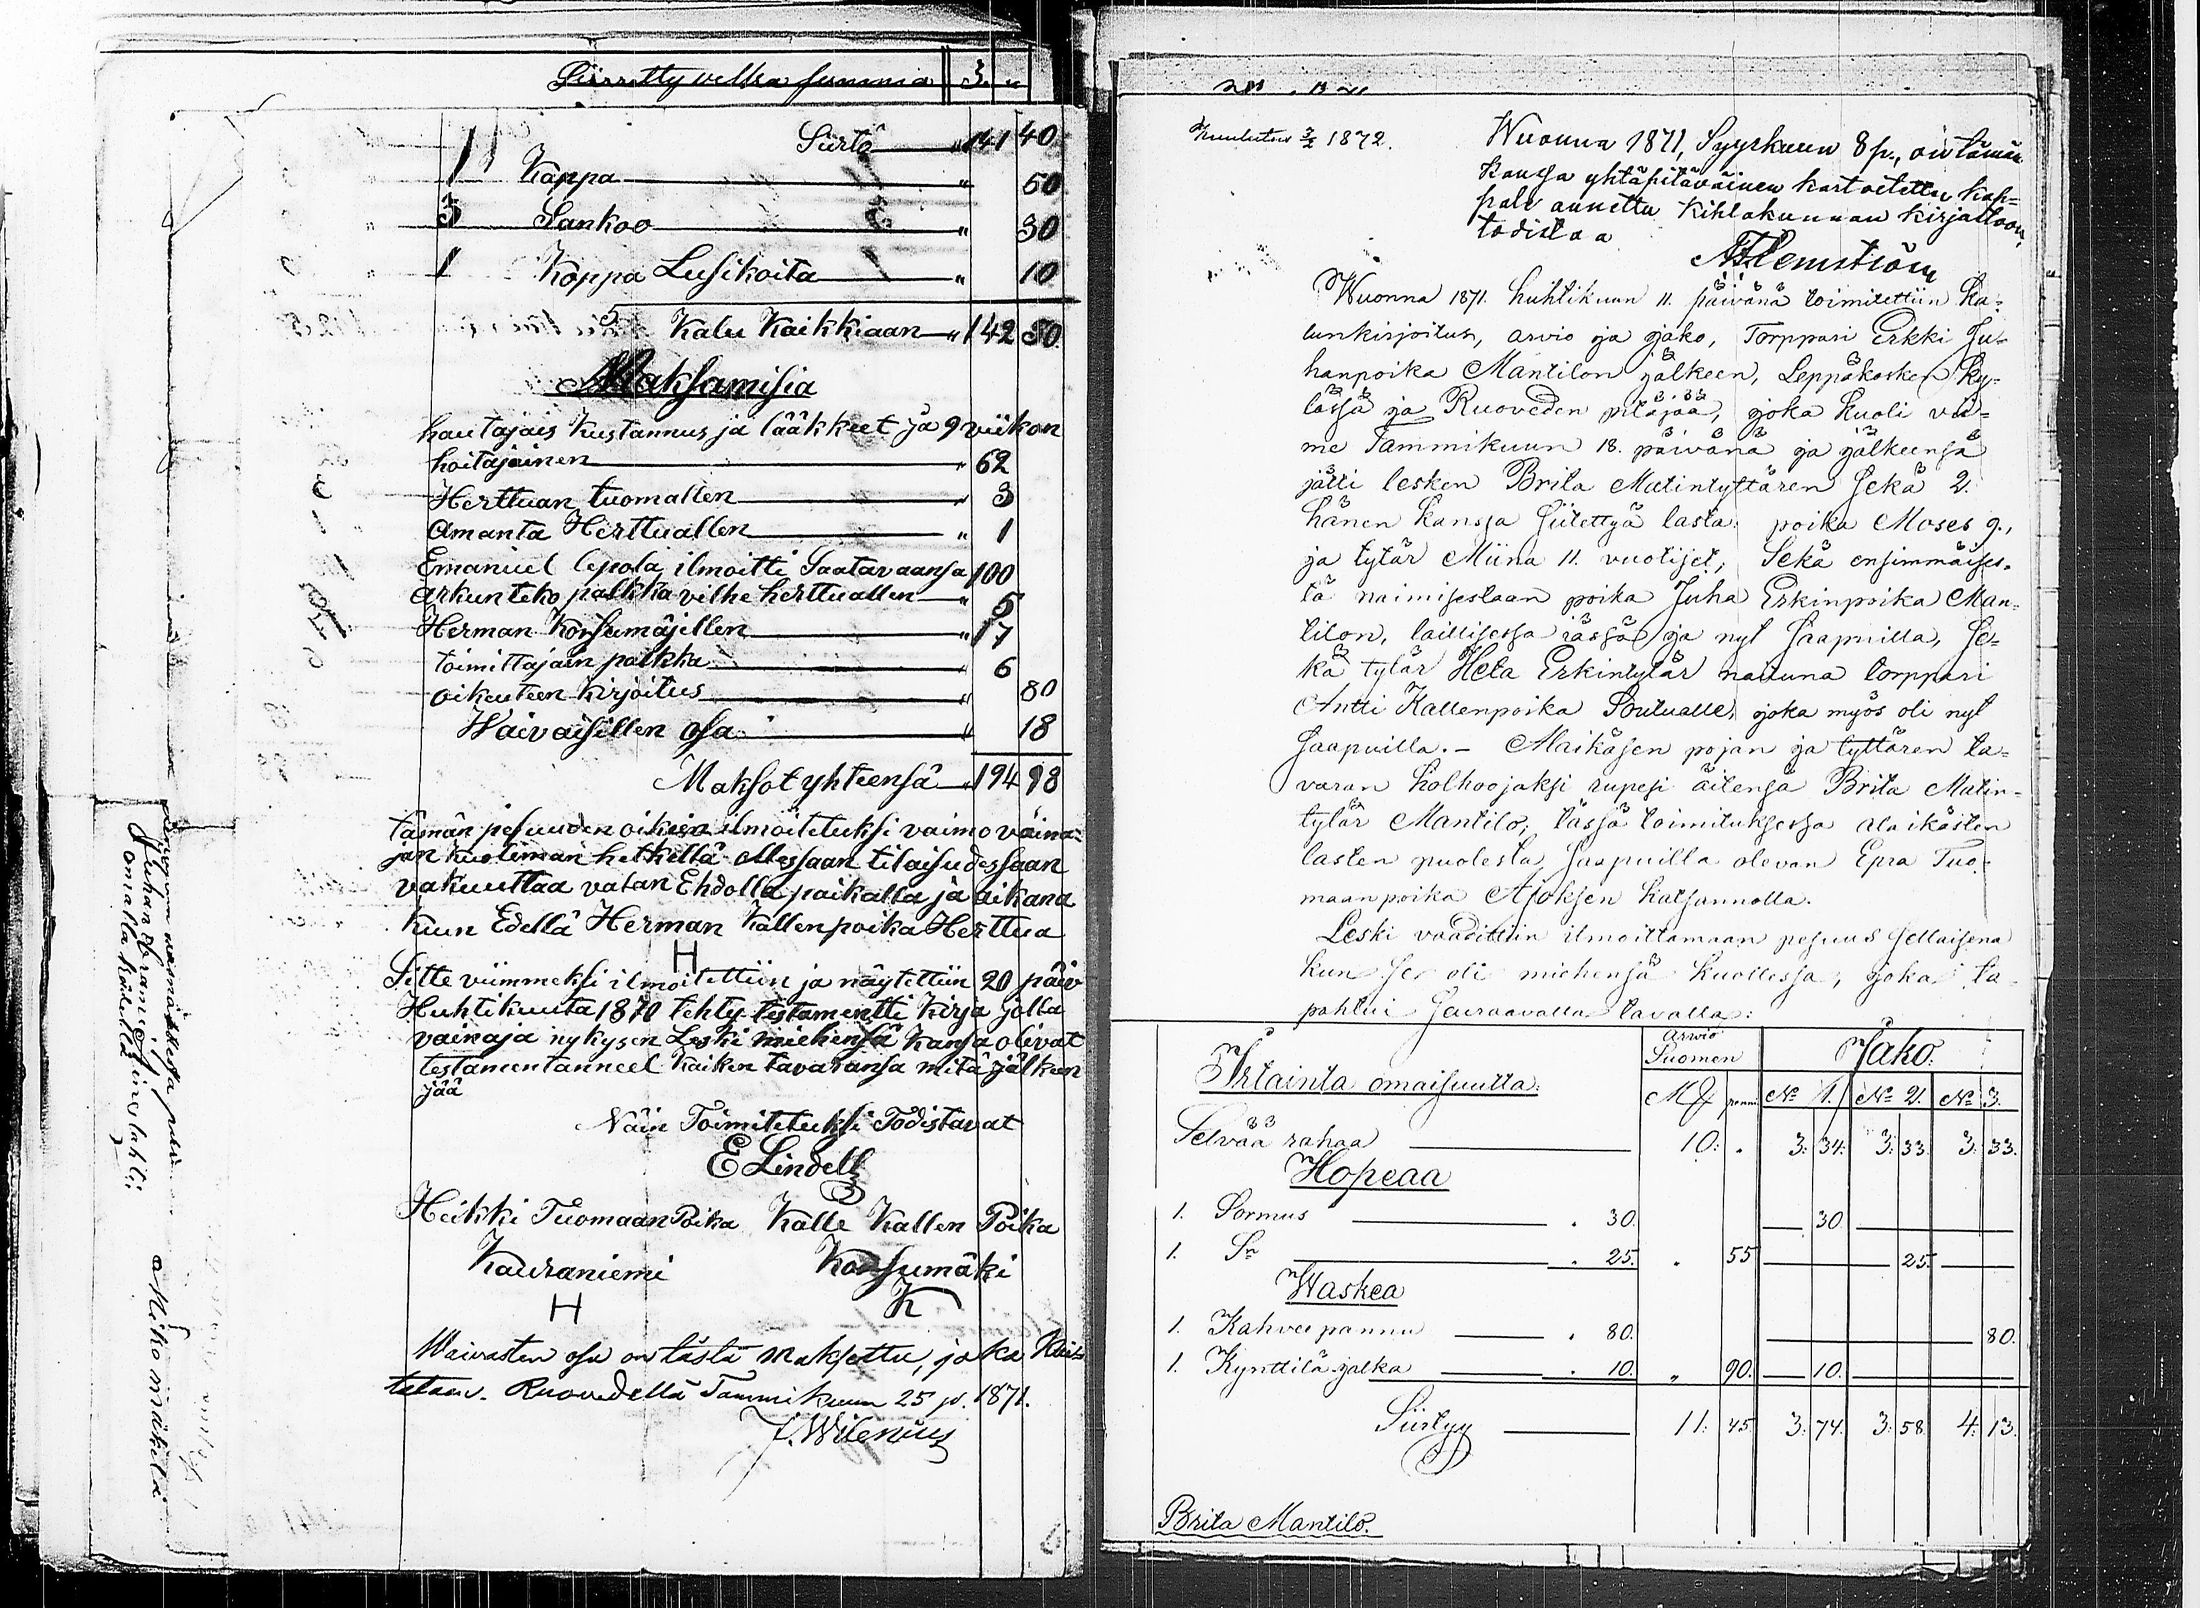 Siirretty velka summa 3
Siirto " 141 40
1 Kappa " 50
3 Sankoo " 30
1 Koppa Lusikoita " 10
Kalu Kaikkiaan " 142 80
Maksamisia
hautajais kustannus ja lääkkeet ja 9 viikon
hoitajainen " 62
Herttuan tuomallen " 3
Amanta Herttuallen " 1
Emanuel lepola ilmoitti Saatavaansa 100
arkun teko palkka vilhe herttuallen " 5
Herman Konsumäjellen " 17
toimittajain palkka " 6
oikeuteen kirjoitus " 80
Waivaisillen osa " 18
Maksot yhteensä " 194 98
tämän pesuuden oikein ilmoitetuksi vaimo vaina=
jan kuoleman hetkellä ollessaan tilaisudessaan
vakuuttaa valan Ehdolla paikalla ja aikana
kuin Edellä Herman Kallenpoika Herttua
H
Sitte viimmeksi ilmoitettiin ja näytettiin 20 päiv
Huhtikuuta 1870 tehty testamentti kirja jolla
vainaja nykysen Leski miehensä kansa olivat
testamentanneet kaiken tavaransa mitä jälkeen
jää
Näin Toimitetuksi Todistavat
E Lindell
Heikki Tuomaan Poika Kalle Kallen Poika
Kauraniemi Konsumäki
H K
Waivasten osa on tästä maksettu, joka kuit=
tataan. Ruovedellä Tammikuun 25 p. 1871.
J. Wilenius
omalla kädellä
Mikonmäkelä
Kuulutus 3/2 1872.
Wuonna 1871, Syyskuun 8 p., on tämän
kanssa yhtäpitäväinen kartoitettu kap=
pale annettu Kihlakunnan kirjastoon,
todistaa
Wuonna 1871. huhtikuun 11. päivänä toimitettiin ka=
lunkirjoitus, arvio ja jako, Torppari Erkki Ju=
hanpoika Mantilon jälkeen, Leppäkosken ky=
lässä ja Ruoveden pitäjää, joka kuoli vii=
me Tammikuun 18. päivänä ja jälkeensä
jätti lesken Brita Matintyttären sekä 2.
hänen kanssa siitettyä lasta: poika Moses 9.,
ja tytär Miina 11. vuotiset, Sekä ensimmäises=
tä naimisestaan poika Juha Erkinpoika Man=
tilon, laillisessa iässä ja nyt saapuilla, se=
kä tytär Heta Erkintytär naituna torppari
Antti Kallenpoika Soutualle, joka myös oli nyt
saapuilla. — Alaikäsen pojan ja tyttären ta=
varan holhoojaksi rupesi äitensä Brita Matin=
tytär Mantilo, tässä toimituksessa alaikästen
lasten puolesta saapuilla olevan Epra Tuo=
maanpoika Ajoksen katsannolla.
Leski vaadittiin ilmoittamaan pesuus sellaisena
kun se oli miehensä kuollessa, joka ta=
pahtui seuraavalla tavalla:
Irtainta omaisuutta: Arwio Suomen Jako.
Mk penni No 1. No 2. No 3.
Selvää rahaa 10: " 3: 34: 3: 33 3: 33.
Hopeaa
1. Sormus " 30. 30
1. Sn " 25. " 55 25.
Waskea
1. Kahvee pannu " 80. 80.
1. Kynttilä jalka " 10. " 90. 10.
Siirtyy 11: 45 3: 74. 3: 58 4: 13.
Brita Mantilo.